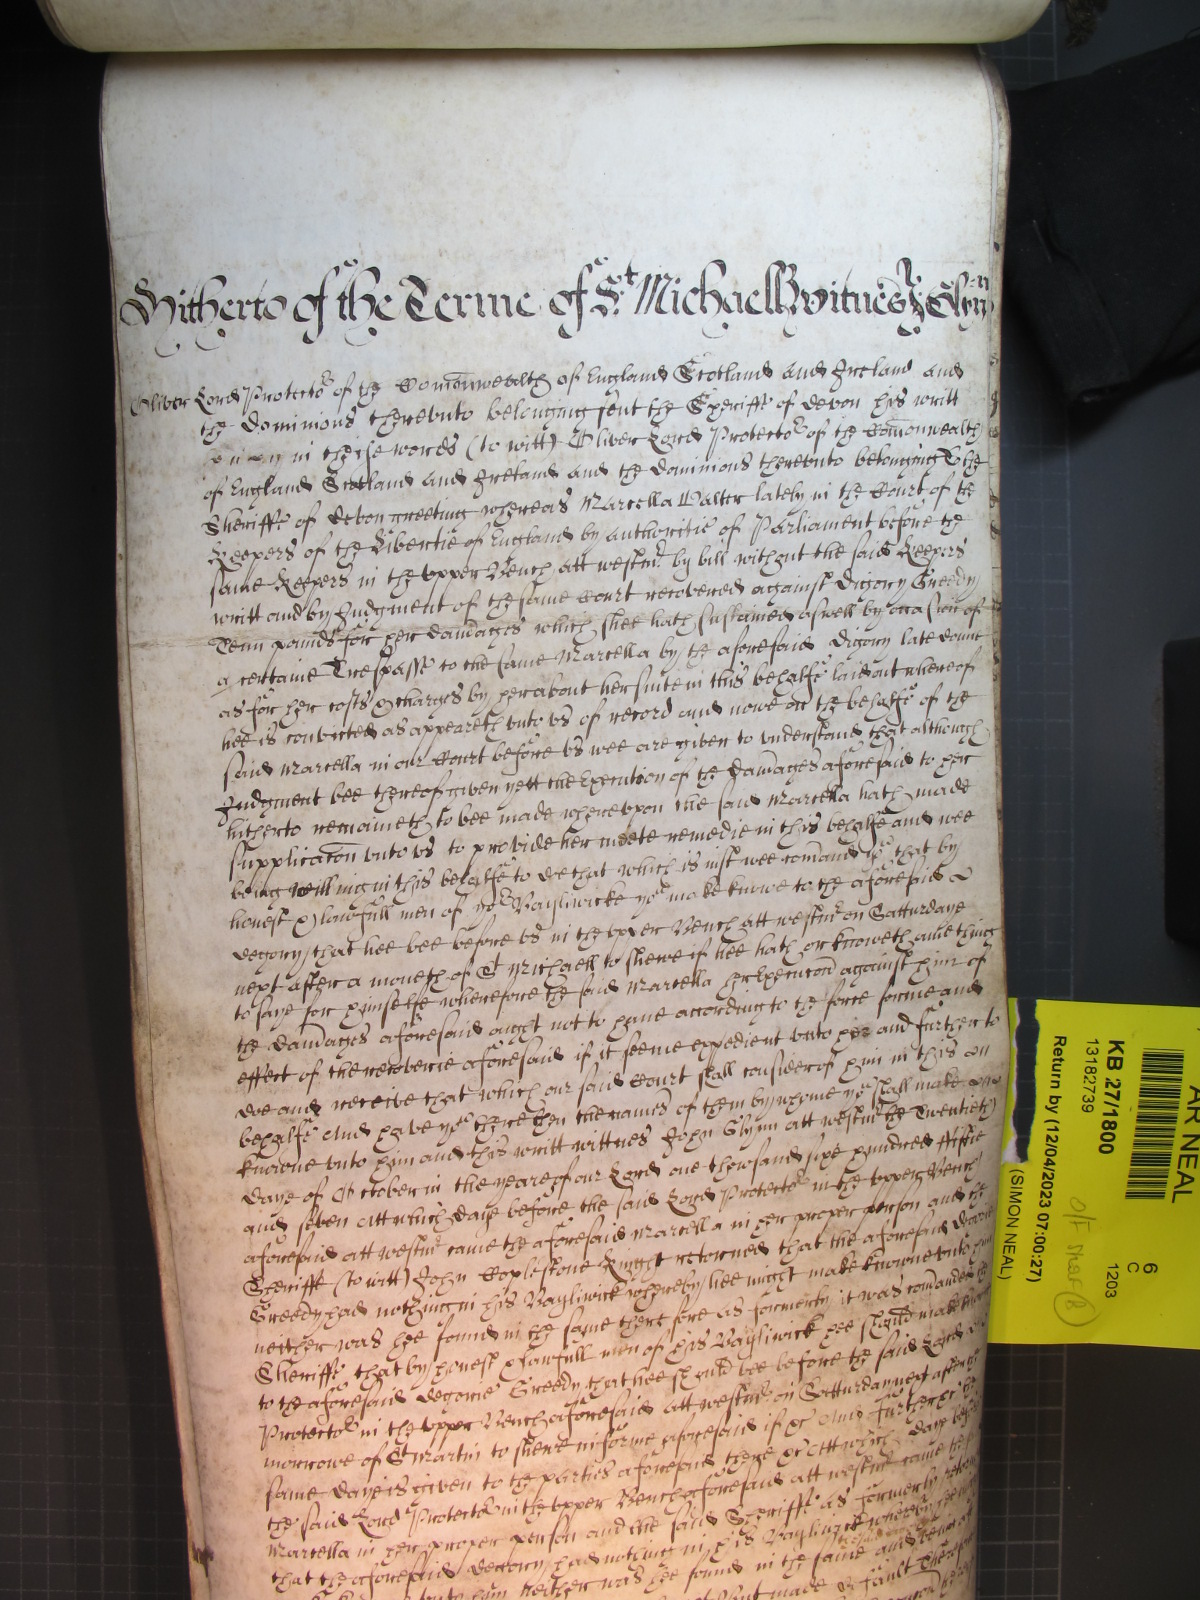 Hitherto of the Terme of St Michaell witnes Glyn
Oliver Lord Protector of the Comonwealth of England Scotland and Ireland and
the Dominions therevnto belonging sent the Sheriffe of Devon his writt
in theise words (to witt) Oliver Lord Protector of the Comonwealth
of England Scotland and Ireland and the Dominions therevnto belonging To the
Sheriffe of Devon greeting whereas Marcella Walter lately in the Court of the
Keepers of the Libertie of England by authoritie of Parliament before the
same Keepers in the vpper Bench att westmr by bill without the said Keepers
writt and by Judgment of the same Court recovered against Digory Greedy
Tenn pounds for her damages which shee hath sustained aswell by occasion of
a certaine Trespasse to the same Marcella by the aforesaid Digory late donne
as for her costs & charges by her about her suite in this behalfe laid out whereof
hee is convicted as appeareth vnto vs of record and nowe on the behalfe of the
said Marcella in our Court before vs wee are given to vnderstand that although
Judgment bee thereof given yett the Execution of the damages aforesaid to her
hitherto remaineth to bee made wherevpon the said Marcella hath made
supplicacon vnto vs to provide her meete remedie in this behalfe and wee
being willing in this behalfe to doe that which is iust wee comand you that by
honest & lawfull men of yor Bayliwicke you make knowe to the aforesaid
Degory that hee bee before vs in the vpper Bench att westmr on Satturdaye
next after a moneth of St Michaell to shewe if hee hath or knoweth anie thing
to saye for himselfe wherefore the said Marcella her Execucon against him of
the damages aforesaid ought not to have according to the force forme and
effect of the recoverie aforesaid if it seeme expedient vnto her and further to
doe and receive that which our said Court shall consider of him in this
behalfe and have you there then the names of them by whome you shall make
knowne vnto him and this writt wittnes John Glynn att westmr the Twentieth
daye of October in the yeare of our Lord one thowsand sixe hundred fiftie
and seven att which daye before the said Lord Protector in the vpper Bench
aforesaid att westmr came the aforesaid Marcella in her proper person and the
Sheriffe (to witt) John Coplestone Knight retorned that the aforesaid
Greedy had nothing in his Bayliwick whereby hee might make knowne vnto him
neither was hee found in the same therefore as formerly it was comanded the
Sheriffe that by honest & lawfull men of his Bayliwick hee should make knowne
to the aforesaid Degorie Greedy that hee should bee before the said Lord
Protector in the vpper Bench aforesaid att westmr on Satturday next after the
morrowe of St Martin to shewe in forme aforesaid if &c And further &c the
same daye is given to the parties aforesaid there &c Att which daye before
the said Lord Protector in the vpper Bench aforesaid att westmr came the
Marcella in her proper person and the said Sheriffe as formerly retorned
that the aforesaid Degory had nothing in his Bayliwick whereby hee
vnto him neither was hee found in the same and
made default Therefore
AR NEAL
KB 27/1800
13182739
Return by (12/04/2023 07:00:27)
(SIMON NEAL)
6
C
1203